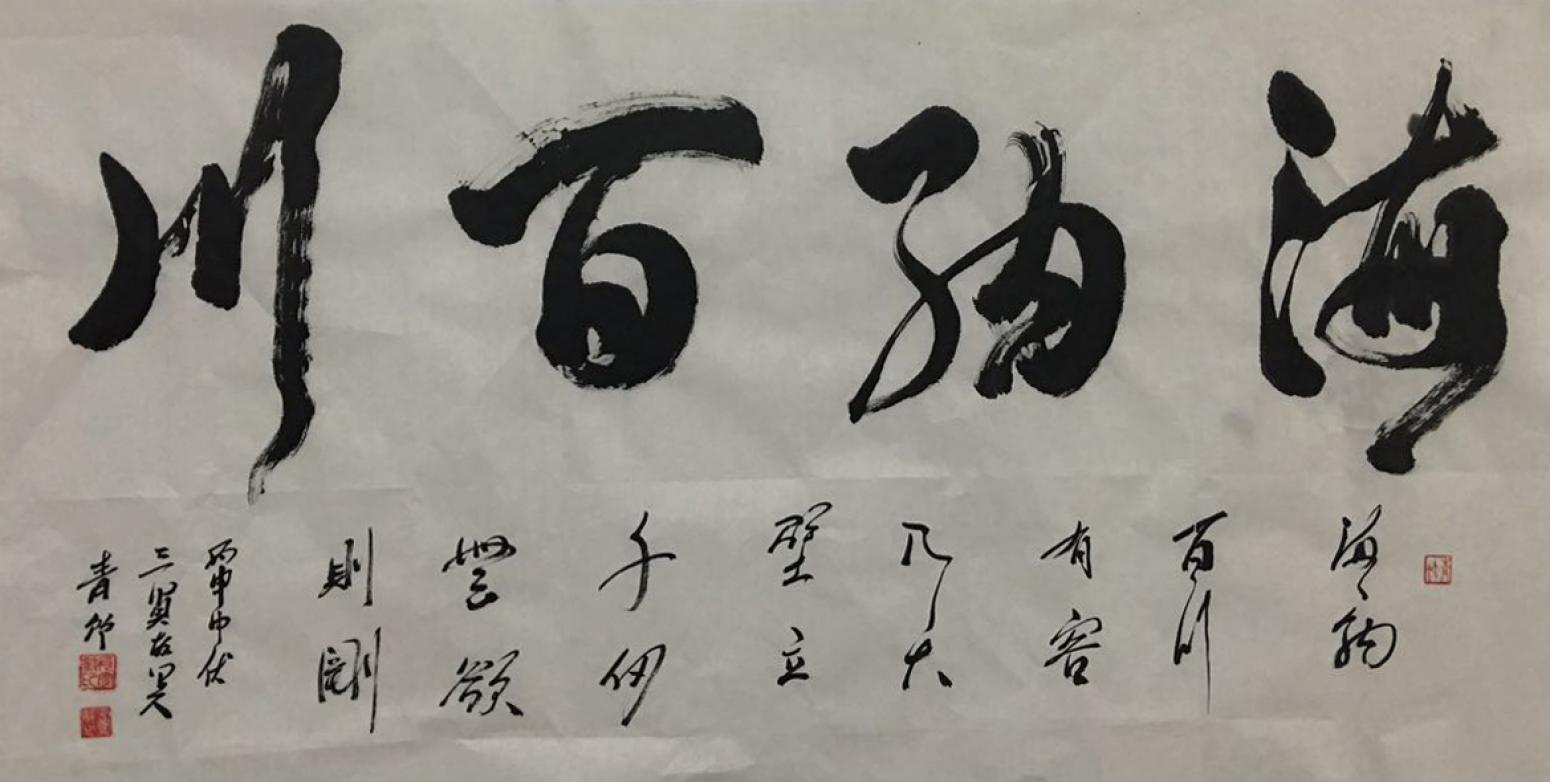 海納百川
海納
百川
有容
乃大
壁立
千仞
無欲
則剛
丙申中伏
三賢故里人
青竹